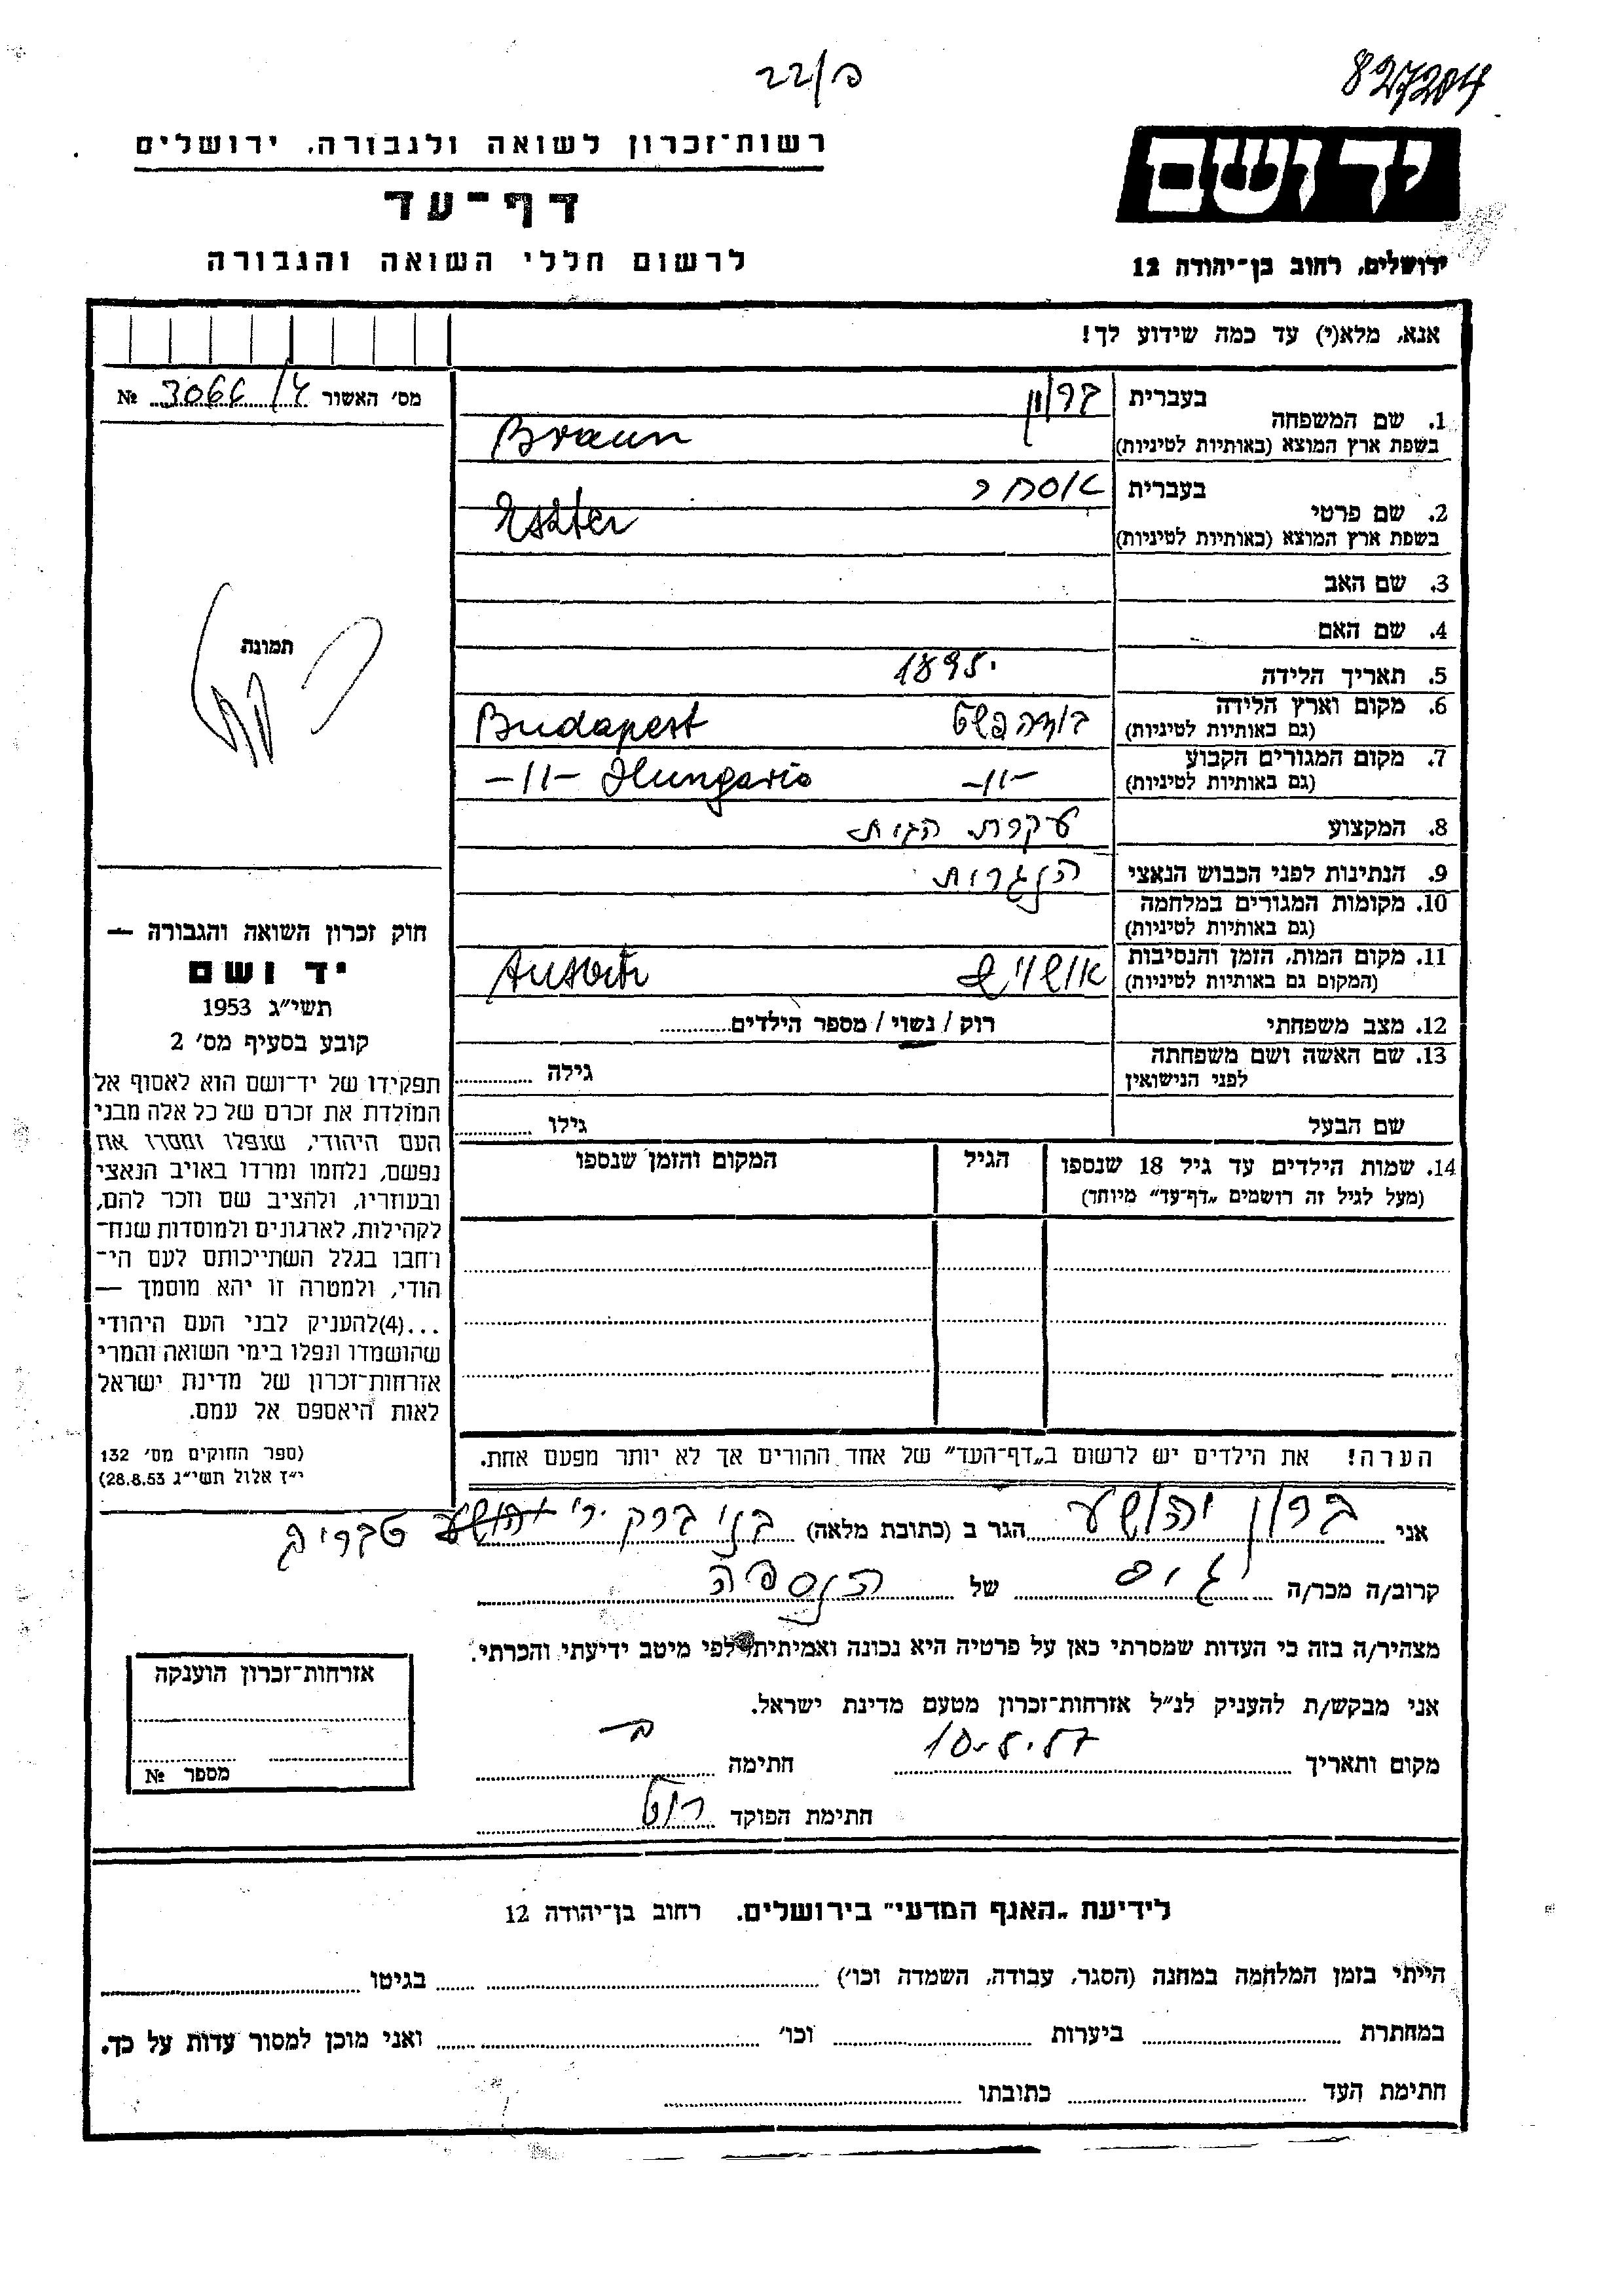 22/ס
827204
רשות־זכרון לשואה ולגבורה, ירושלים
דף־עד
לרשום חללי השואה והגבורה
יד ושם
ירושלים, רחוב בן־יהודה 12
אנא, מלא(י) עד כמה שידוע לך!
מס׳ האשור № 3066
1. שם המשפחה
בעברית ברון
בשפת ארץ המוצא (באותיות לטיניות) Braun
2. שם פרטי
בעברית אסתר
בשפת ארץ המוצא (באותיות לטיניות) Eszter
3. שם האב
4. שם האם
5. תאריך הלידה 1895
6. מקום וארץ הלידה
(גם באותיות לטיניות) בודהפשט Budapest
7. מקום המגורים הקבוע
(גם באותיות לטיניות) -"- -"- Hungaria
8. המקצוע עקרת הבית
9. הנתינות לפני הכבוש הנאצי הונגרית
10. מקומות המגורים במלחמה
(גם באותיות לטיניות)
11. מקום המות, הזמן והנסיבות
(המקום גם באותיות לטיניות) אושויץ
12. מצב משפחתי רוק / נשוי / מספר הילדים
13. שם האשה ושם משפחתה
לפני הנישואין גילה
שם הבעל גילו
14. שמות הילדים עד גיל 18 שנספו הגיל המקום והזמן שנספו
(מעל לגיל זה רושמים „דף־עד״ מיוחד)
הערה! את הילדים יש לרשום ב„דף־העד״ של אחד ההורים אך לא יותר מפעם אחת.
תמונה
חוק זכרון השואה והגבורה —
יד ושם
תשי״ג 1953
קובע בסעיף מס׳ 2
תפקידו של יד־ושם הוא לאסוף אל
המולדת את זכרם של כל אלה מבני
העם היהודי, שנפלו ומסרו את
נפשם, נלחמו ומרדו באויב הנאצי
ובעוזריו, ולהציב שם וזכר להם,
לקהילות, לארגונים ולמוסדות שנח־
רחבו בגלל השתייכותם לעם הי־
הודי, ולמטרה זו יהא מוסמך —
...(4)להעניק לבני העם היהודי
שהושמדו ונפלו בימי השואה והמרי
אזרחות־זכרון של מדינת ישראל
לאות היאספם אל עמם.
(ספר החוקים מס׳ 132
י״ז אלול תשי״ג 28.8.53)
אני ברון יהושע הגר ב (כתובת מלאה) בני ברק
קרוב/ה מכר/ה גיס של הנספה
מצהיר/ה בזה כי העדות שמסרתי כאן על פרטיה היא נכונה ואמיתית לפי מיטב ידיעתי והכרתי.
אני מבקש/ת להעניק לנ״ל אזרחות־זכרון מטעם מדינת ישראל.
מקום ותאריך 10.5.57 חתימה
חתימת הפוקד
אזרחות־זכרון הוענקה
מספר №
לידיעת „האגף המדעי״ בירושלים. רחוב בן־יהודה 12
הייתי בזמן המלחמה במחנה (הסגר, עבודה, השמדה וכו׳) בגיטו
במחתרת ביערות וכו׳ ואני מוכן למסור עדות על כך.
חתימת העד כתובתו